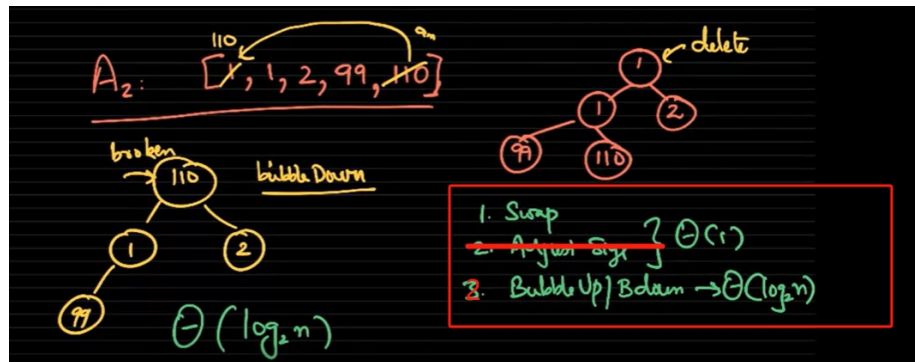 110
A₂: [1, 1, 2, 99, 110]
delete
1
1 2
99 110
broken
110 bubble Down
1 2
99
Θ(log₂n)
1. Swap
2. Adjust Size } Θ(1)
3. Bubble Up / Bdown → Θ(log₂n)